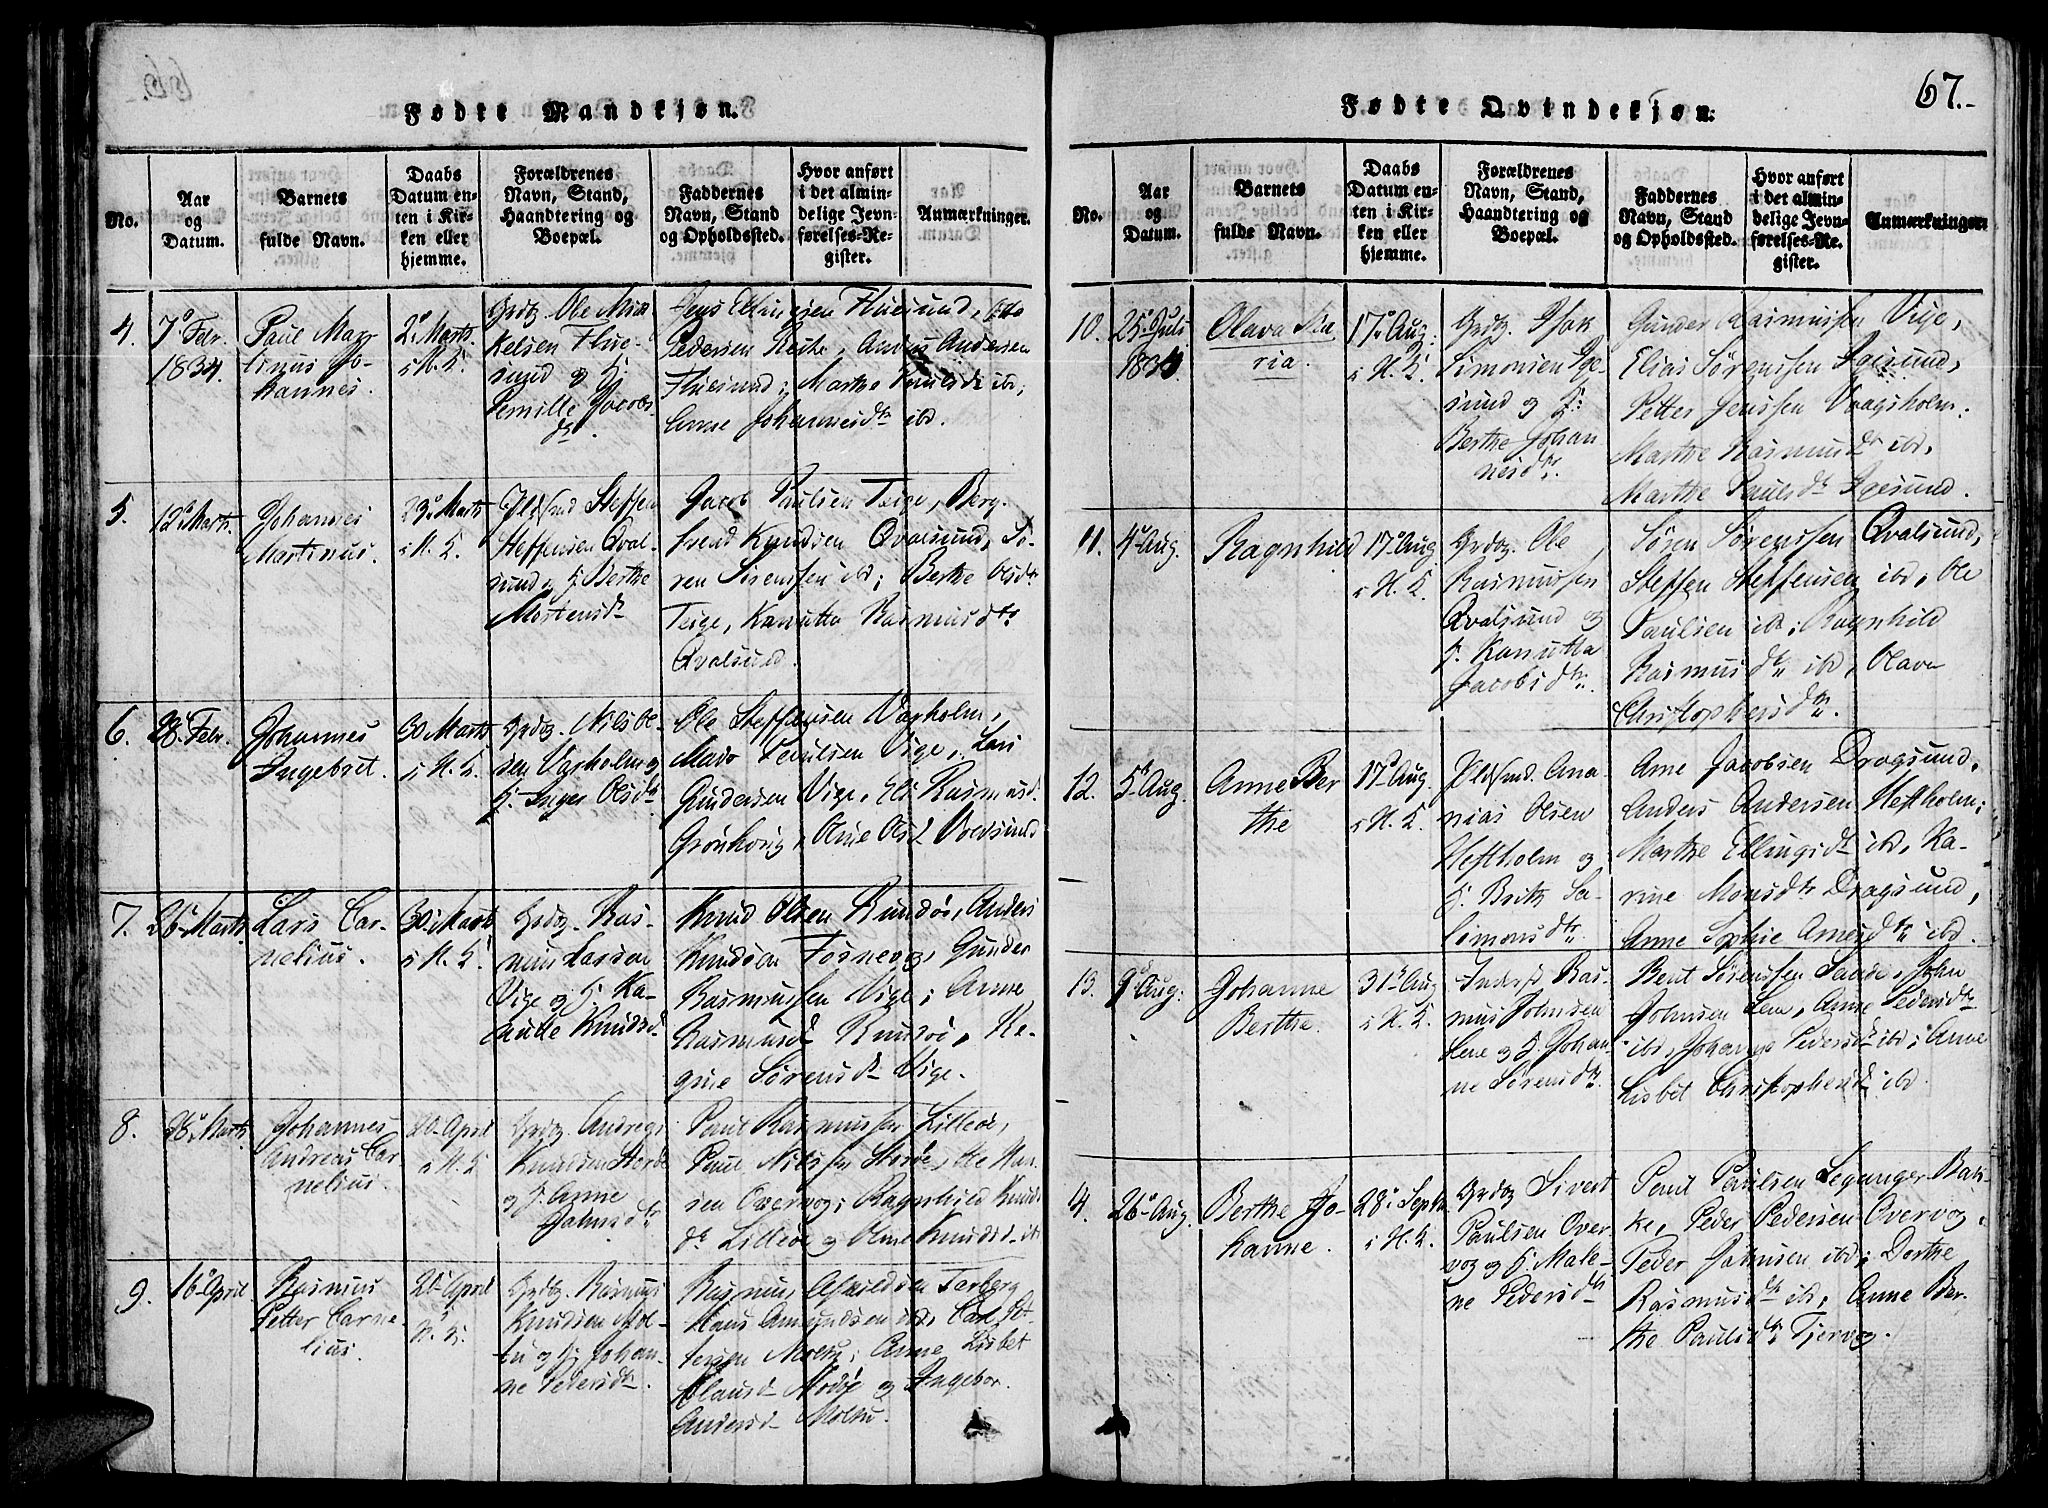 Fødte Mandkjøn.
No.
Aar
og
Datum.
Barnets
fulde Navn.
Daabs
Datum en-
ten i Kir-
ken eller
hjemme.
Forældrenes
Navn, Stand,
Haandtering og
Boepæl.
Faddernes
Navn, Stand
og Opholdssted.
Hvor anført
i det almin-
delige Jevn-
førelses-Re-
gister.
Anmærkninger.
4.
7de Febr.
1834.
Paul Mar-
tinus Jo-
hannes.
2. Marts
i H. K.
Grdbg. Ole Mic-
kelsen Flue-
sund og H:
Pernille Jacobs
dr.
Jens Ellingsen Fluesund, Ole
Pedersen Anders Andersen
Fluesund; Marthe Paulsdr ibd;
Anne Johannesdr ibd.
5.
12. Marts.
Johannes
Martinus.
23. Marts
i H. K.
Steffen
Steffensen Qval-
sund og H. Berthe
Mortensdr
Jacob Paulsen Teige, Berg.
svend Knudsen Qvalsund, Sø-
ren Sørenssen ibd; Berthe Olsdr
Teige, Kanutta Rasmusdtr
Qvalsund.
6.
28. Febr.
Johannes
Ingebret.
30 Marts
i H. K.
Grdbg. Nils Ol-
sen Vagholm og
H. Inger Olsdr
Ole Steffensen Vagholm,
Mads Paulsen Vige, Lars
Gundersen Vige, Eli Rasmusd.
Grønhvig, Oline Olsd
7.
26. Marts.
Lars Cor-
nelius.
30. Marts
i H. K.
Grdbg. Ras-
mus Larsen
Vige og H. Ka-
nutte Knudsd.
Knud Olsen Rundøe, Anders
Knudsen Fosnevog, Gunder
Rasmussen Vige; Anne
Rasmusd Rundøe, Re-
gine Sørensd Vige.
8.
28. Marts
Johannes
Andreas Cor-
nelius.
20. April
i H. K.
Grdbg. Andreas
Knudsen Storøe
og H. Anne
Johnsdr
Paul Rasmussen Lilleøe,
Paul Nilssen Storøe, Ole Han-
sen Overvog; Ragnhild Knuds
dr. Lilleøe og Oline Knudsd. ibd
9.
16. April
Rasmus
Petter Corne-
lius.
20. April
H. K.
Grdbg. Rasmus
Knudsen Mol-
tu og H. Johan-
ne Pedersdr.
Rasmus Tarberg
Hans Amundsen ibd, Carl Pet-
tersen Moltu; Anne Lisbet
Clausd Modøe og Ingebor.
Andersd Moltu.
67.-
Fødte Qvindekjøn.
No.
Aar
og
Datum.
Barnets
fulde Navn.
Daabs
Datum en-
ten i Kir-
ken eller
hjemme.
Forældrenes
Navn, Stand,
Haandtering og
Boepæl.
Faddernes
Navn, Stand
og Opholdssted.
Hvor anført
i det almin-
delige Jevn-
førelses-Re-
gister.
Anmærkninger.
10.
25. Juli
1834.
Olava Ma-
ria.
17. Aug:
i H. K.
Grdbg. Isak
Simonsen Ige-
sund og H:
Berthe Johan
nesdtr.
Gunder Rasmussen Vige,
Elias Sørenssen Igesund,
Petter Jenssen Vaagsholm.
Marthe Rasmusdr ibd,
Marthe Paulsdr Igesund.
11.
4. Aug.
Ragnhild
17. Aug
i H. K.
Grdbg. Ole
Rasmussen
Qvalsund og
H. Kanutta
Jacobsdtr.
Søren Sørenssen Qvalsund,
Steffen Steffensen ibd, Ole
Paulsen ibd; Ragnhild
Rasmusdtr ibd, Olava
Christophersdtr.
12.
5. Aug.
Anne Ber
the
17. Aug.
i H. K.
Ana-
nias Olsen
Heftholm og
H. Brithe Sa-
limonsdtr
Arne Jacobsen Dragsund,
Anders Andersen Heftholm;
Marthe Ellingsdr ibd, Ka-
rine Monsdtr Dragsund,
Anne Sophie Arnesdtr ibd.
13.
9. Aug:
Johanne
Berthe.
31. Aug
i H. K.
Inderst Ras-
mus Johnsen
Lene og H. Johan-
ne Sørensdtr.
Bent Sørenssen Sande, John
Johnsen Lene, Anne Pedersdtr
ibd, Johanne Pedersdr ibd; Anne
Lisbet Christophersdr ibd.
4.
26. Aug.
Berthe Jo-
hanne.
28. Septb.
i H. K.
Grdbg Sivert
Paulsen Over-
vog og H. Male-
ne Pedersdtr
Paul Paulsen Leganger Bak-
ke, Peder Pedersen Overvog,
Peder Johnsen ibd; Dorthe
Rasmusdr ibd, Anne Ber-
the Paulsdr Tjervog.